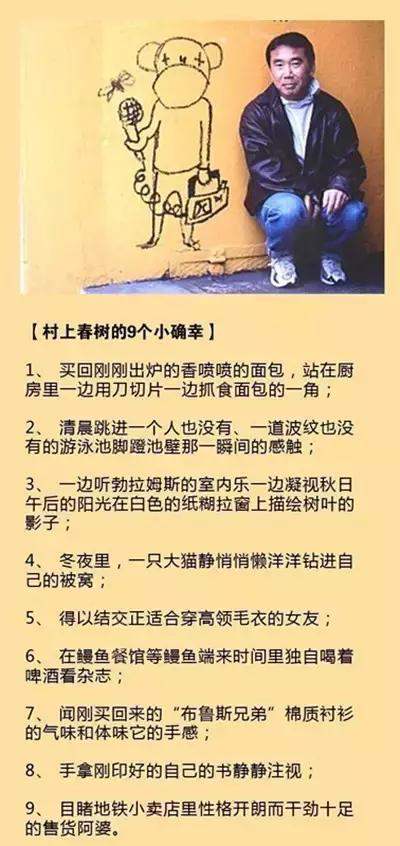 【村上春树的9个小确幸】
1、 买回刚刚出炉的香喷喷的面包，站在厨
房里一边用刀切片一边抓食面包的一角；
2、 清晨跳进一个人也没有、一道波纹也没
有的游泳池脚蹬池壁那一瞬间的感触；
3、 一边听勃拉姆斯的室内乐一边凝视秋日
午后的阳光在白色的纸糊拉窗上描绘树叶的
影子；
4、 冬夜里，一只大猫静悄悄懒洋洋钻进自
己的被窝；
5、 得以结交正适合穿高领毛衣的女友；
6、 在鳗鱼餐馆等鳗鱼端来时间里独自喝着
啤酒看杂志；
7、 闻刚买回来的“布鲁斯兄弟”棉质衬衫
的气味和体味它的手感；
8、 手拿刚印好的自己的书静静注视；
9、 目睹地铁小卖店里性格开朗而干劲十足
的售货阿婆。